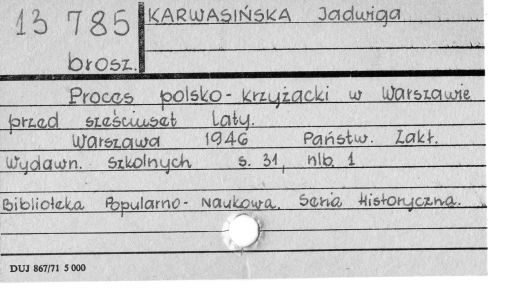 13 785
brosz.
KARWASIŃSKA Jadwiga
Proces polsko-krzyżacki w Warszawie
przed sześciuset laty.
Warszawa 1946 Państw. Zakł.
Wydawn. Szkolnych s. 31, nlb. 1
Biblioteka Popularno-Naukowa. Seria Historyczna.
DUJ 867/71 5 000